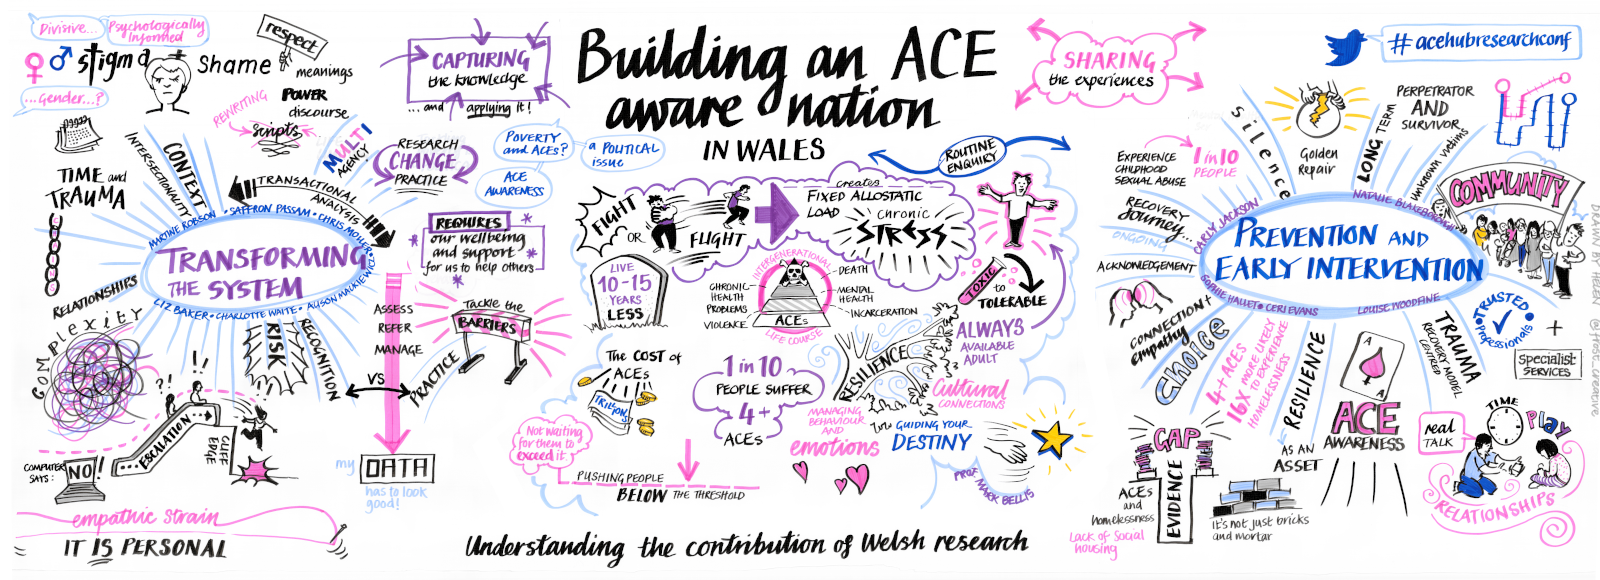 Divisive...
Psychologically
Informed
stigma
Shame
respect
...Gender...?
meanings
POWER
discourse
REWRITING
scripts
MULTI
AGENCY
TIME and
TRAUMA
INTERSECTIONALITY
CONTEXT
TRANSACTIONAL
ANALYSIS
CAPTURING
the knowledge
...and applying it!
RESEARCH
CHANGE
PRACTICE
POVERTY
and ACEs?
a POLITICAL
issue
ACE
AWARENESS
MARTINE ROBSON • SAFFRON PASSAM • CHRIS MOHLER
TRANSFORMING
THE SYSTEM
LIZ BAKER • CHARLOTTE WAITE •
REQUIRES
our wellbeing
and support
for us to help others
RELATIONSHIPS
COMPLEXITY
RISK
RECOGNITION
ASSESS
REFER
MANAGE
VS
PRACTICE
Tackle the
BARRIERS
?!
!
!!
ESCALATION
CLIFF
EDGE
COMPUTER
SAYS:
NO!
my
DATA
has to look
good!
empathic strain
IT IS PERSONAL
Building an ACE
aware nation
IN WALES
FIGHT
OR
FLIGHT
creates
FIXED ALLOSTATIC
LOAD
chronic
STRESS
ROUTINE
ENQUIRY
LIVE
10-15
YEARS
LESS
INTERGENERATIONAL
CHRONIC
HEALTH
PROBLEMS
VIOLENCE
ACEs
LIFE COURSE
DEATH
MENTAL
HEALTH
INCARCERATION
TOXIC
to
TOLERABLE
ALWAYS
AVAILABLE
ADULT
The COST of
ACEs
TRILLIONS
1 in 10
PEOPLE SUFFER
4+
ACEs
RESILIENCE
Cultural
CONNECTIONS
MANAGING
BEHAVIOUR
AND
emotions
GUIDING YOUR
DESTINY
PROF MARK BELLIS
Not waiting
for them to
exceed it
PUSHING PEOPLE
BELOW THE THRESHOLD
Understanding the contribution of Welsh research
SHARING
the experiences
#acehubresearchconf
silence
Golden
Repair
LONG TERM
PERPETRATOR
AND
SURVIVOR
Unknown victims
COMMUNITY
EXPERIENCE
CHILDHOOD
SEXUAL ABUSE
1 in 10
PEOPLE
RECOVERY
Journey...
ONGOING
ACKNOWLEDGEMENT
CARLY JACKSON
NATALIE BLAKEBOROUGH
PREVENTION AND
EARLY INTERVENTION
SOPHIE HALLET • CERI EVANS
LOUISE WOODFINE
CONNECTION +
empathy
Choice
4+ ACES
16X MORE LIKELY
TO EXPERIENCE
HOMELESSNESS
RESILIENCE
AS AN
ASSET
A
A
ACE
AWARENESS
TRAUMA
RECOVERY MODEL
CENTRED
TRUSTED
Professionals
+
specialist
SERVICES
GAP
EVIDENCE
ACEs
and
homelessness
Lack of Social
housing
it's not just bricks
and mortar
real
TALK
TIME
Play
RELATIONSHIPS
DRAWN BY HELEN @frost_creative